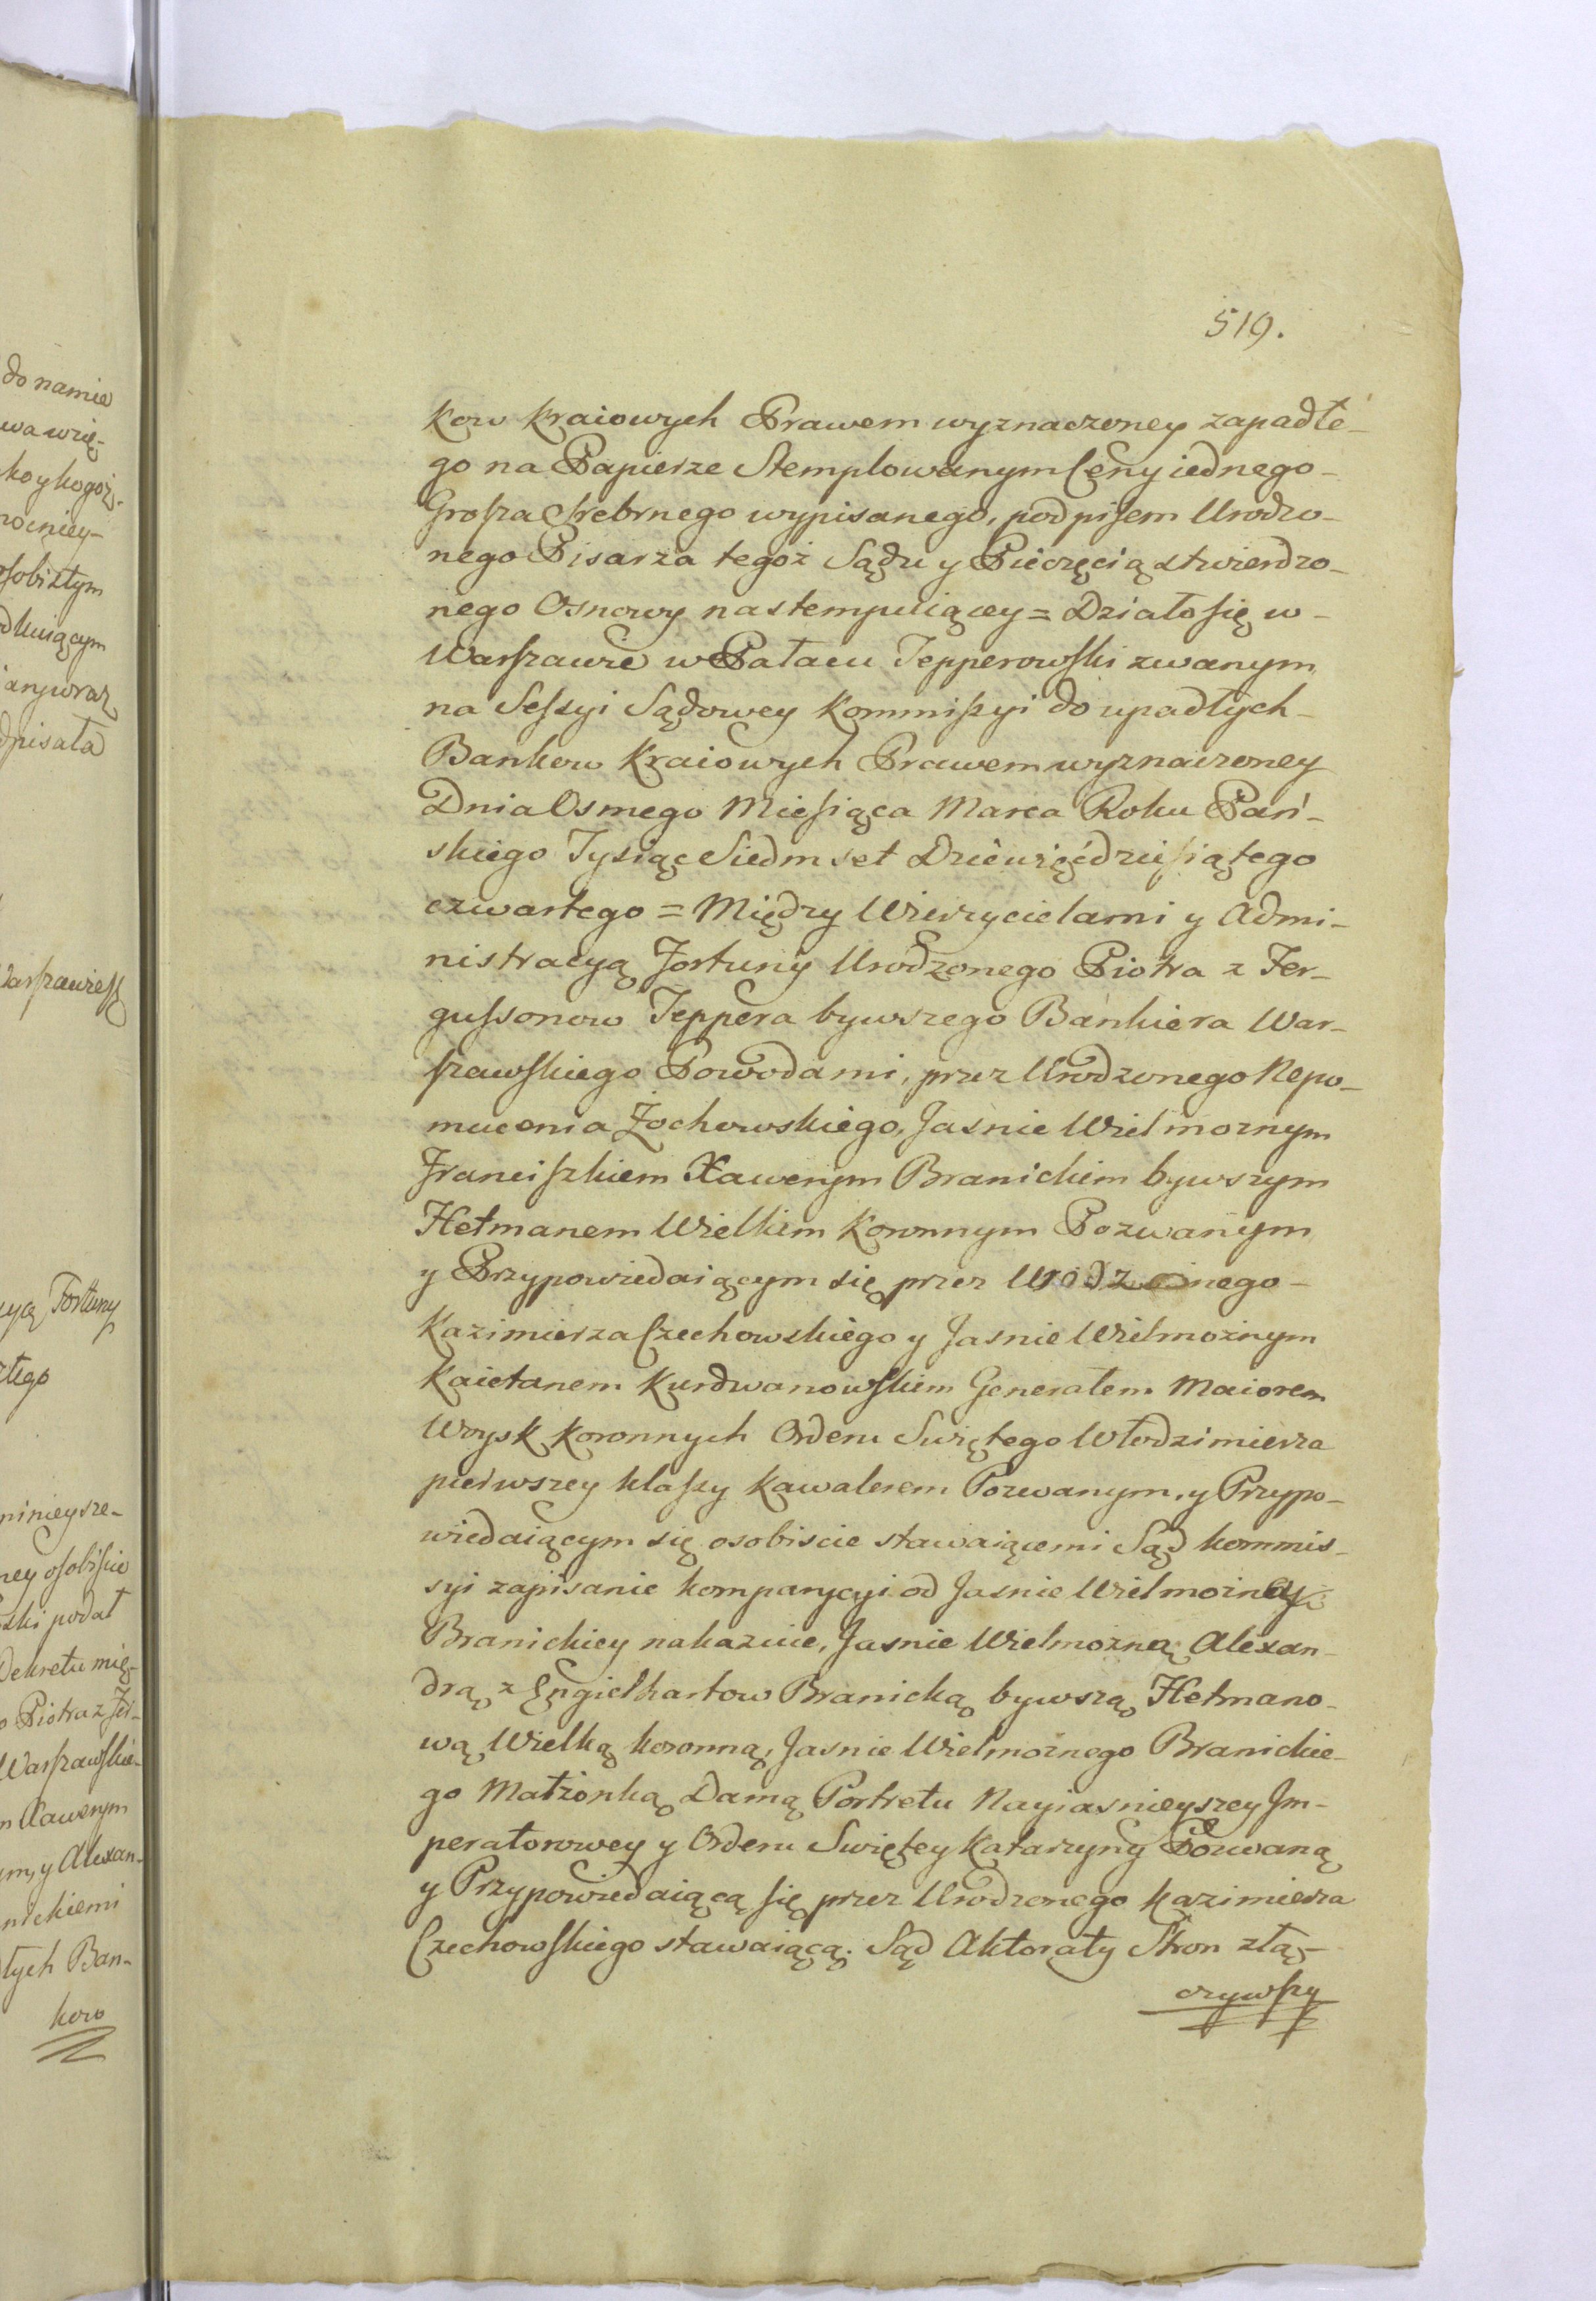 519.
kow kraiowych Prawem wyznaczoney zapadłe-
go na Papierze Stemplowanym Ceny iednego-
Grosza Srebrnego wypisanego, podpisem Urodzo-
nego Pisarza tegoż Sądu y Pieczęcią stwierdzo-
nego Osnowy nastempuiącey = Działo się w-
Warszawie w Pałacu Tepperowski zwanym
na Sessyi Sądowey Kommissyi do upadłych-
Bankow Kraiowych Prawem wyznaczoney
Dnia Osmego Miesiąca Marca Roku Pań-
skiego Tysiąc Siedmset Dziewięćdziesiątego
czwartego = Między Wierzycielami y Admi-
nistracyą Fortuny Urodzonego Piotra z Fer-
gussonow Teppera bywszego Bankiera War-
szawskiego Powodami, przez Urodzonego Nepo-
mucena Żochowskiego, Jasnie Wielmoznym
Franciszkiem Xawerym Branickim bywszym
Hetmanem Wielkim Koronnym Pozwanym
y Przypowiedaiącym się przez Urodzonego-
Kazimierza Czechowskiego y Jasnie Wielmożnym
Kaietanem Kurdwanowskim Generałem Maiorem
Woysk Koronnych Orderu Swiętego Włodzimierza
pierwszey klassy Kawalerem Pozwanym, y Przypo-
wiedaiącym się osobiscie stawaiącemi Sąd kommis-
syi zapisanie komparycyi od Jasnie Wielmożney
Branickiey nakazuie, Jasnie Wielmożną Alexan-
drą z Engielhartow Branicką bywszą Hetmano-
wą Wielką koronną, Jasnie Wielmożnego Branickie-
go Małżonką Damą Portretu Nayiasnieyszey Im-
peratorowey y Orderu Swiętey Katarzyny Pozwaną
y Przypowiedaiącą się przez Urodzonego Kazimierza
Czechowskiego stawaiącą. Sąd Aktoraty Stron złą-
czywszy
do namie
wa wię-
osobistym
dpisała
Fortuny
ninieysze-
ney osobiscie
ski podał
Dekretu mię-
o Piotra z Fer-
Warszawskie-
m Xawerym
ym, y Alexan-
nickiemi
łych Ban-
kow